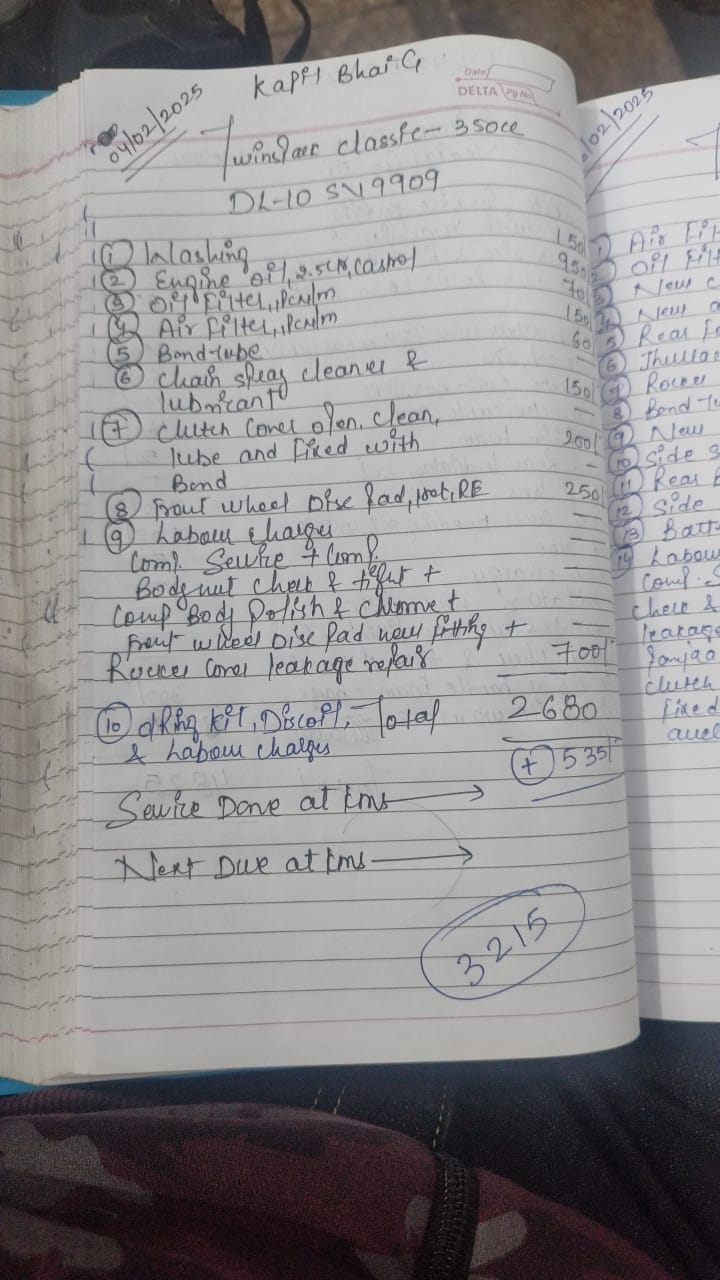 Kapil Bhai G
Date
DELTA Pg No
04/02/2025
Twinspark classic - 350cc
DL-10 SV 9909
① Washing 150/
② Engine oil, 2.5Ltr, Castrol 950/
③ Oil Filter, 1Pcs/m 70/
④ Air Filter, 1Pcs/m 150/
⑤ Bond-tube 60/
⑥ Chain spray cleaner &
lubricant 150/
⑦ Clutch Cover open, clean,
lube and fixed with 200/
Bond
⑧ Front wheel Disc Pad, RE 250/
⑨ Labour charges
Comp. Service + Comp.
Body nut check & tight +
Comp Body Polish & Chrome +
Front wheel Disc Pad new fitting +
Rocker Cover leakage repair 700/
Total 2680
⑩ oRing kit, Discoil,
& Labour charges + 535/
Service Done at kms →
Next Due at kms →
3215
/02/2025
Air Filt
Oil Filt
New c
New
Rear
Rocker
Bond-tu
New
Side s
Rear
Side
Batt
Labou
Comp. S
check &
leakage
clutch
fixed